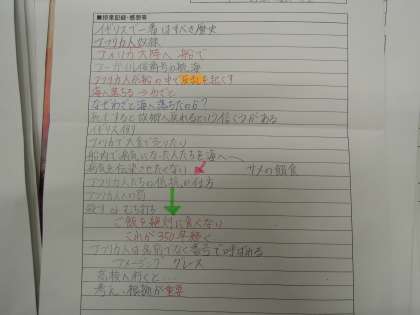 ■授業記録・感想等
イギリスで一番はずべき歴史
アフリカ人奴隷
アメリカ大陸へ 船で
号の航海
アフリカ人が船の中で反乱を起こす
海へ落ちる→わざと
なぜわざと海へ落ちたのか?
死
イギリス側
アメリカで大金で売りたい
船内で病気になった人たちを海へ〜
病気を伝染させたくない サメの餌食
アフリカ人たちの抵抗の仕方
アフリカ人への罰
むち打ち
ご飯を絶対に食べない
これが350年続く
アフリカ人は名前でなく番号で呼ばれる
アメージング グレース
高校へ行くと…
考え、根拠が重要